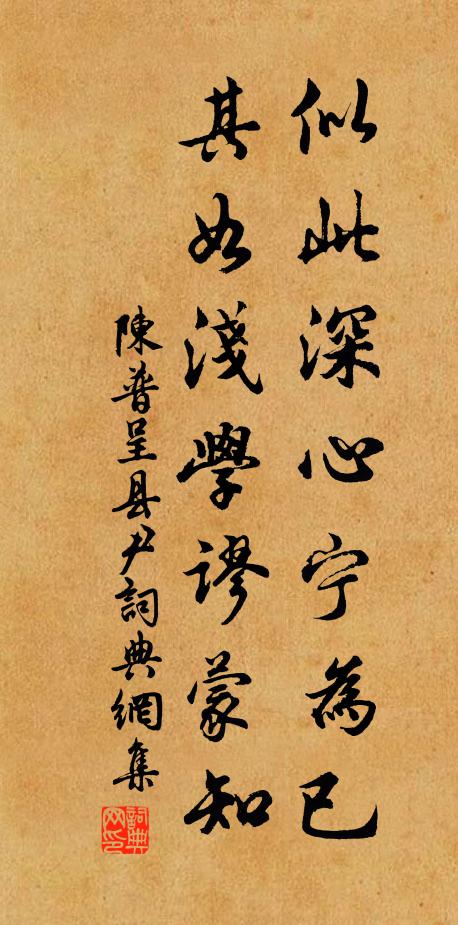 似此深心宁為已
其如淺學謬蒙知
陳普呈县尹詞典網集
詞典網印